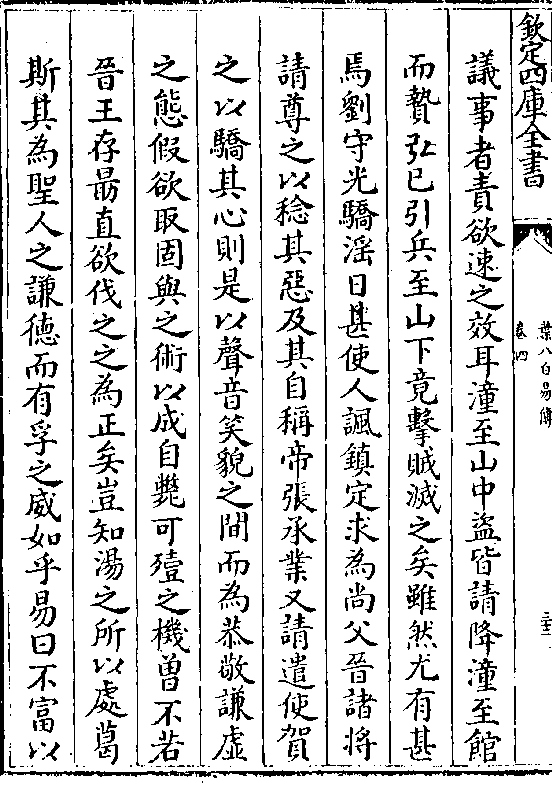 欽定四庫全書
葉八白易傳
卷四
三三
議事者責欲速之效耳潼至山中盜皆請降潼至館
而贄弘已引兵至山下竟擊賊滅之矣雖然尤有甚
焉劉守光驕淫日甚使人諷鎮定求為尚父晉諸將
請尊之以稔其惡及其自稱帝張承業又請遣使賀
之以驕其心則是以聲音笑貌之間而為恭敬謙虛
之態假欲取固與之術以成自斃可殪之機曽不若
晉王存朂直欲伐之之為正矣豈知湯之所以處葛
斯其為聖人之謙德而有孚之威如乎易曰不富以